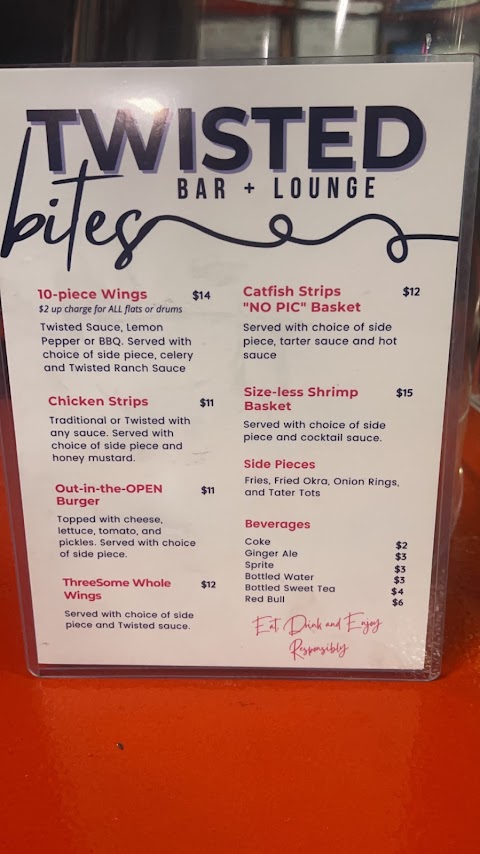 TWISTED
BAR + LOUNGE
bites
10-piece Wings $14
$2 up charge for ALL flats or drums
Twisted Sauce, Lemon
Pepper or BBQ. Served with
choice of side piece, celery
and Twisted Ranch Sauce
Chicken Strips $11
Traditional or Twisted with
any sauce. Served with
choice of side piece and
honey mustard.
Out-in-the-OPEN $11
Burger
Topped with cheese,
lettuce, tomato, and
pickles. Served with choice
of side piece.
ThreeSome Whole $12
Wings
Served with choice of side
piece and Twisted sauce.
Catfish Strips $12
"NO PIC" Basket
Served with choice of side
piece, tarter sauce and hot
sauce
Size-less Shrimp $15
Basket
Served with choice of side
piece and cocktail sauce.
Side Pieces
Fries, Fried Okra, Onion Rings,
and Tater Tots
Beverages
Coke $2
Ginger Ale $3
Sprite $3
Bottled Water $3
Bottled Sweet Tea $4
Red Bull $6
Eat Drink and Enjoy
Responsibly